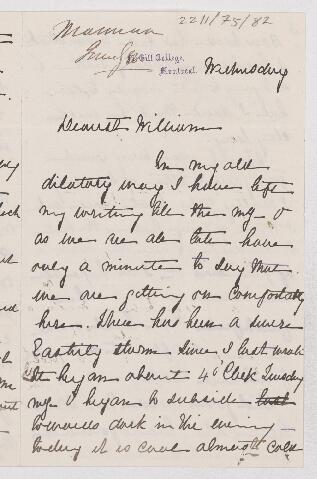 2211/75/82
McGill College,
Montreal. Wednesday
Dearest William
In my old
dilatory way I have left
my writing till the mg &
as we are all late have
only a minute to say that
we are getting on comfortably
here. There has been a severe
Easterly storm since I last wrote
It began about 4 o'Clock Tuesday
mg & began to subside
towards dark in the evening
today it is cool almost cold